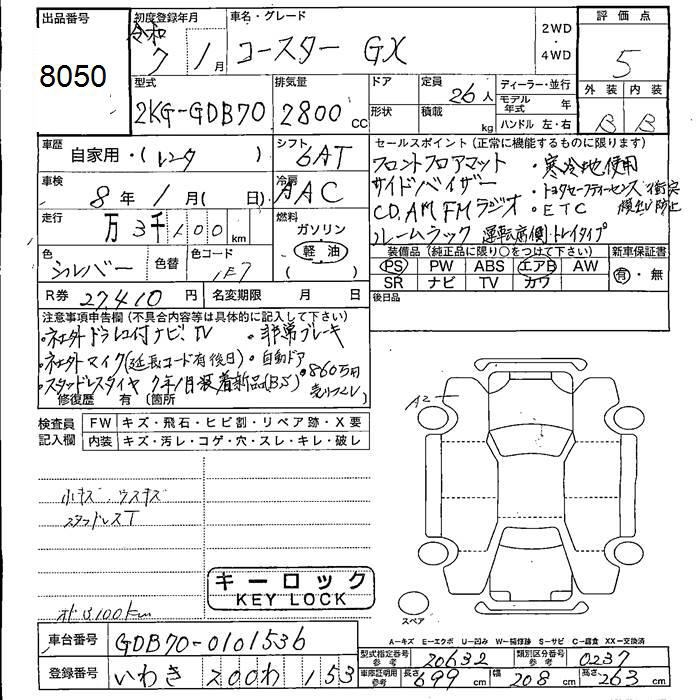 出品番号
8050
初度登録年月
令和
7 1月
車名・グレード
コースター GX
2WD
・
4WD
評価点
5
型式
2KG-GDB70
排気量
2800 cc
ドア
形状
定員
26人
積載
kg
ディーラー・並行
モデル年式 年
ハンドル 左・右
外装 内装
B B
車歴
自家用・(レンタ )
シフト
6AT
車検
8年1月( 日)
冷房
AAC
走行
万3千100km
燃料
ガソリン
軽油
( )
色
シルバー
色替
色コード
1E7
R券 27410円
名変期限 月 日
セールスポイント(正常に機能するものに限ります)
フロントフロアマット ・寒冷地使用
サイドバイザー ・トヨタセーフティーセンス衝突
CD, AM FMラジオ ・ETC
運転席側トレイタイプ
装備品(純正品に限り〇をつけて下さい)
新車保証書
PS PW ABS エアB AW
有・無
SR ナビ TV カワ
後日品
注意事項申告欄(不具合内容等は具体的に記入して下さい)
・社外ドラレコ付ナビ、TV ・非常ブレーキ
・社外マイク(延長コード有後日)・自動ドア
・スタッドレスタイヤ 7年1月装着新品(BS) ・860万円
売リツレ
修復歴 有 (箇所
検査員記入欄
FW キズ・飛石・ヒビ割・リペア跡・X要
内装 キズ・汚レ・コゲ・穴・スレ・キレ・破レ
小キズ、ウスキズ
スタッドレスT
3100km
キーロック
KEY LOCK
A2
スペア
A-キズ E-エクボ U-凹み W-補修跡 S-サビ C-腐食 XX-交換済
車台番号 GDB70-0101536
登録番号 いわき 200 わ 153
型式指定番号 参考 20632
類別区分番号 参考 0237
車庫証明用 参考
長さ 699 cm
幅 208 cm
高さ 263 cm